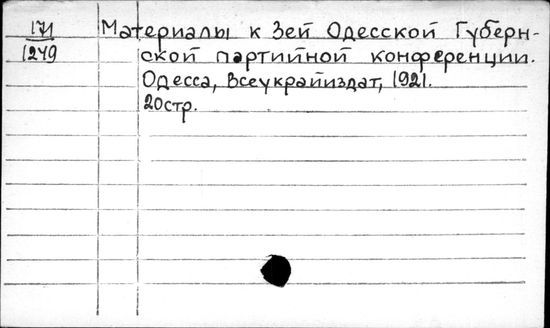 171
1249
Материалы к 3ей Одесской Губерн-
ской партийной конференции.
Одесса, Всеукрайиздат, 1921.
20стр.